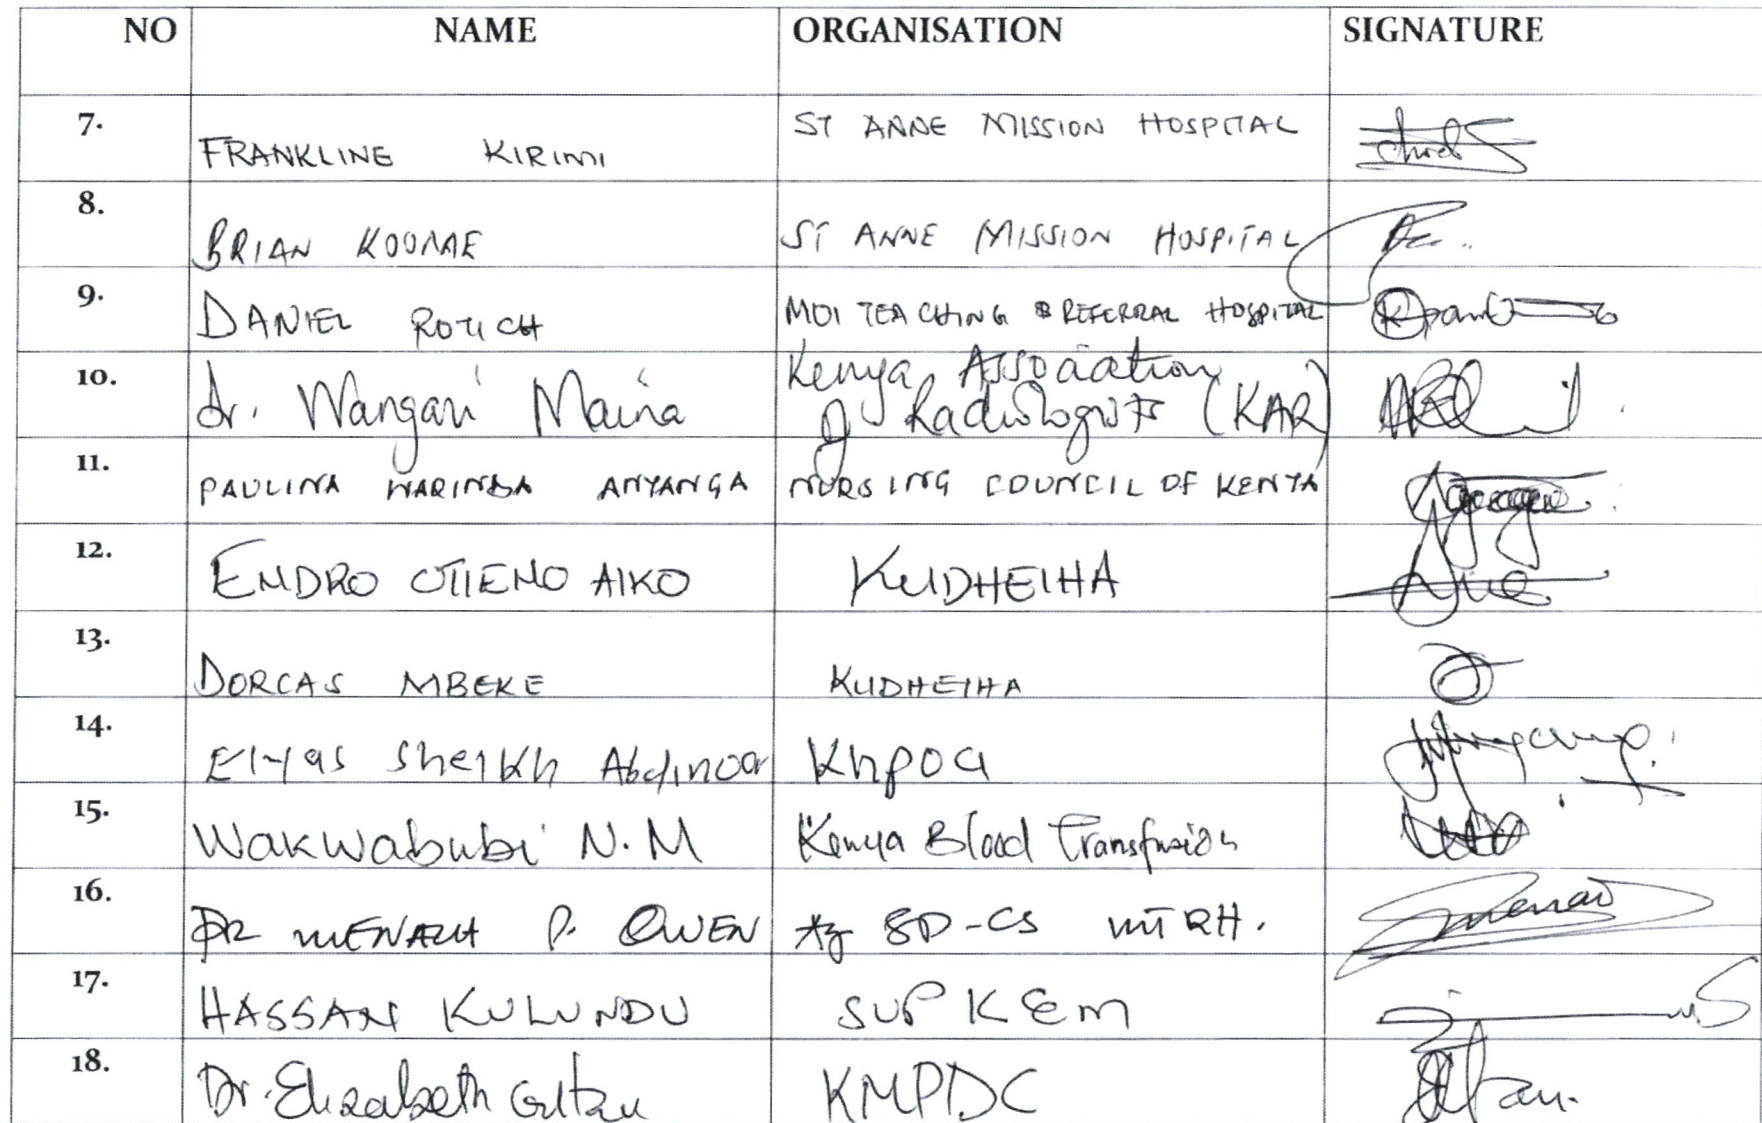 NO NAME ORGANISATION SIGNATURE
7. FRANKLINE KIRIMI ST ANNE MISSION HOSPITAL
8. BRIAN KOOME ST ANNE MISSION HOSPITAL
9. DANIEL ROTICH MOI TEACHING & REFERRAL HOSPITAL
10. dr. Wangari Maina Kenya Association
of Radiologists (KAR)
11. PAULINA ANYANGA NURSING COUNCIL OF KENYA
12. OTIENO AIKO KUDHEIHA
13. DORCAS MBEKE KUDHEIHA
14. Elyas Sheikh Abdinoor Khpoa
15. Wakwabubi N.M Kenya Blood Transfusion
16. DR P. OWEN Ag SD-CS MTRH.
17. HASSAN KULUNDU SUPKEM
18. Dr. Elizabeth Gitau KMPDC